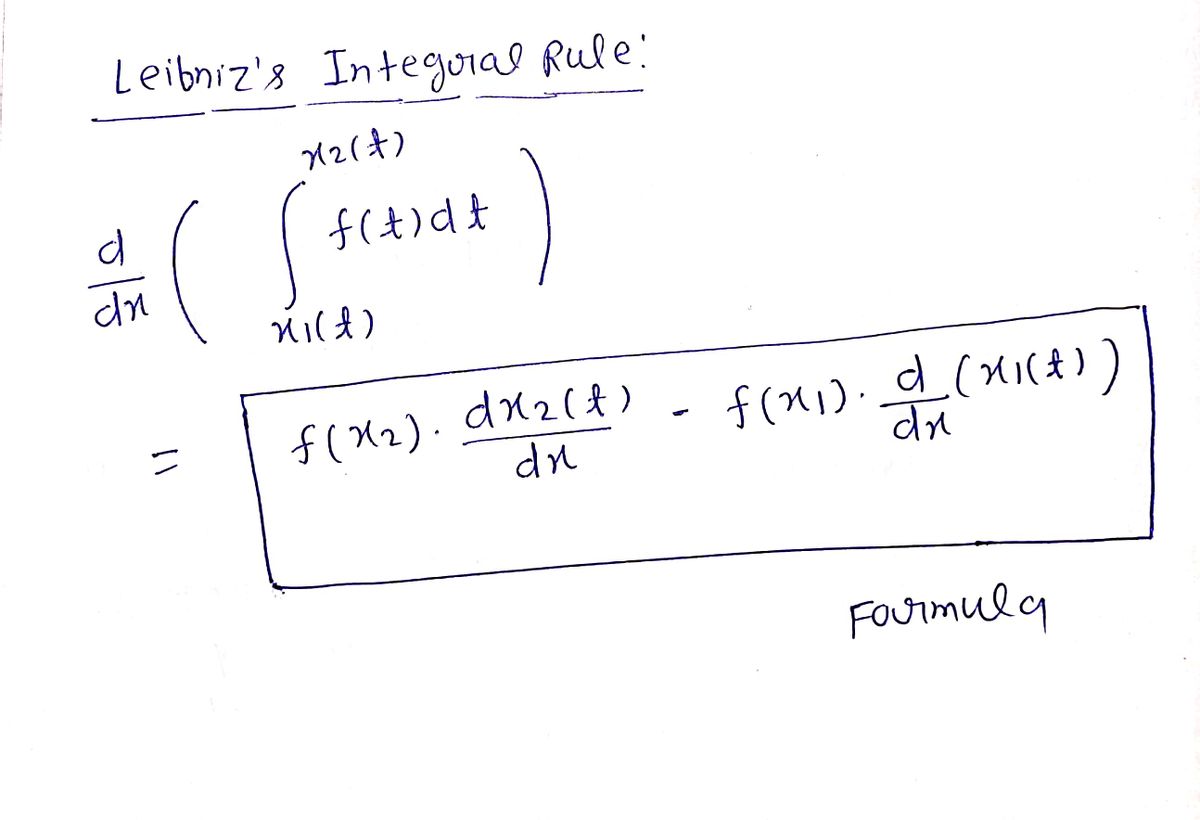 Leibniz's Integral Rule:
x2(t)
d/dx ( ∫ f(t)dt )
x1(t)
= f(x2). dx2(t)/dx - f(x1). d/dx (x1(t))
Formula